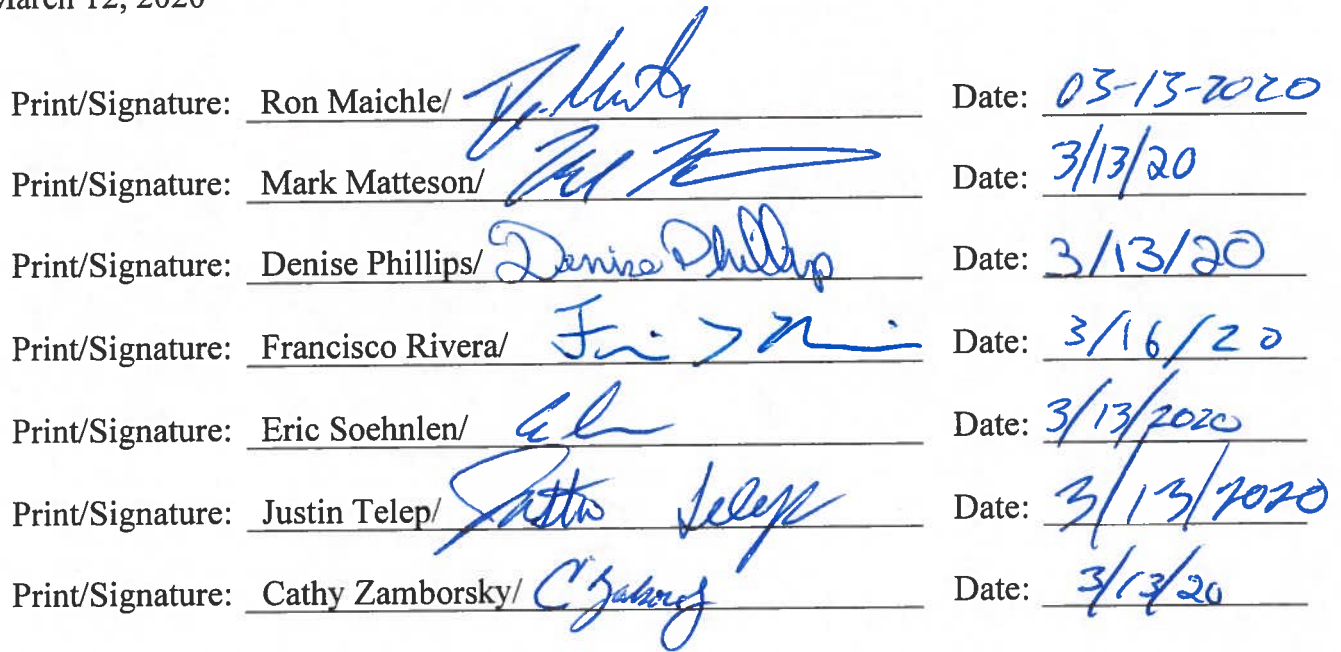 March 12, 2020
Print/Signature: Ron Maichle/ Date: 03-13-2020
Print/Signature: Mark Matteson/ Date: 3/13/20
Print/Signature: Denise Phillips/ Denise Phillips Date: 3/13/20
Print/Signature: Francisco Rivera/ Date: 3/16/20
Print/Signature: Eric Soehnlen/ Date: 3/13/2020
Print/Signature: Justin Telep/ Justin Telep Date: 3/13/2020
Print/Signature: Cathy Zamborsky/ Date: 3/13/20